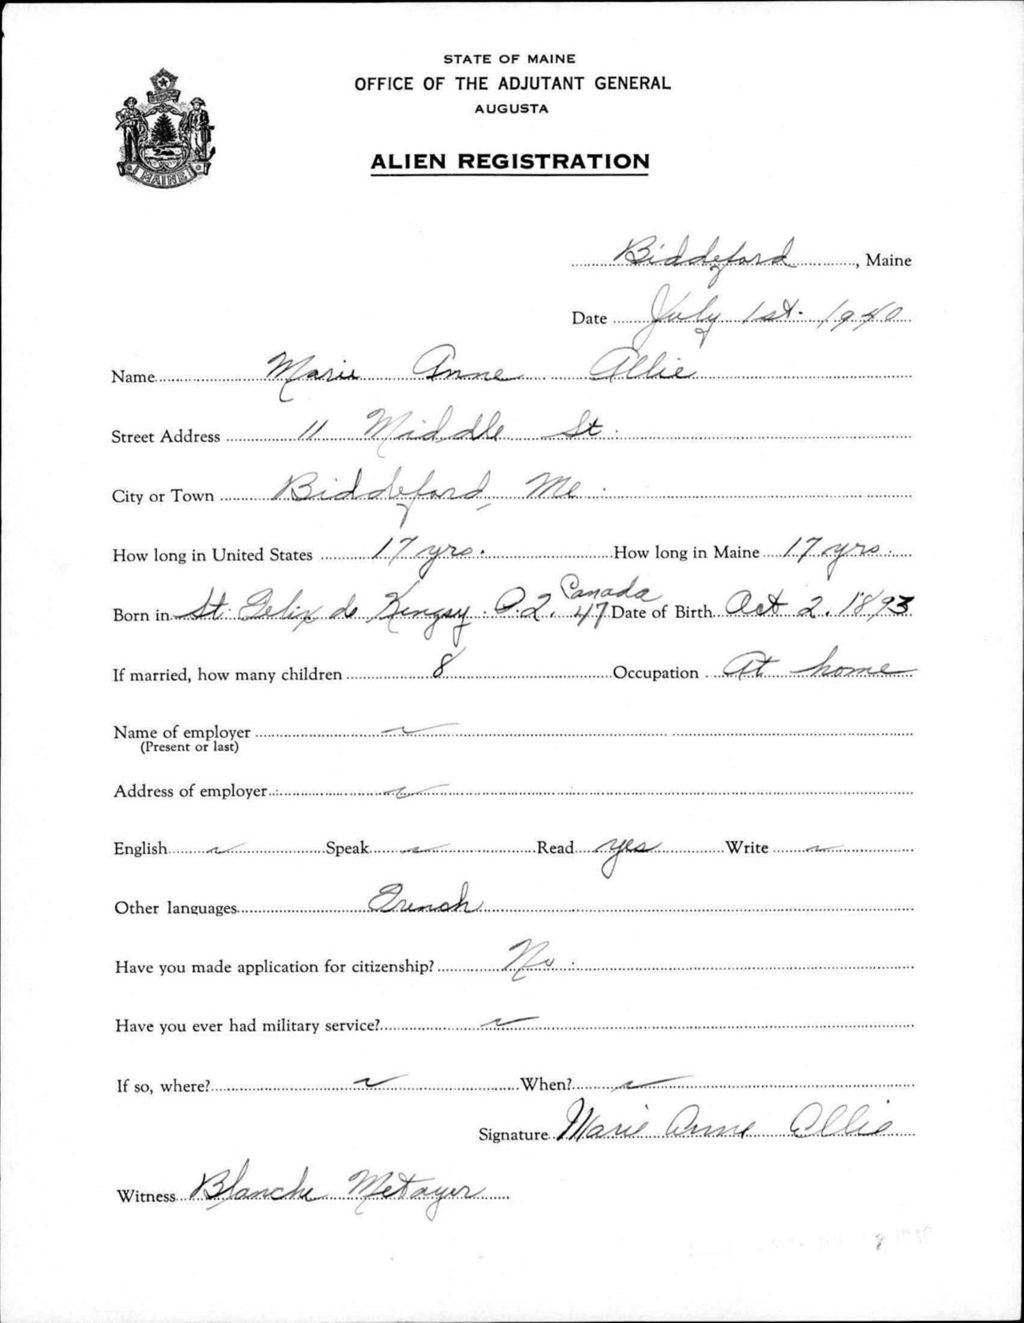 STATE OF MAINE
OFFICE OF THE ADJUTANT GENERAL
AUGUSTA
MAINE
ALIEN REGISTRATION
Biddeford, Maine
Date July 1st. 1940
Name Marie Anne Allie
Street Address 11 Middle St.
City or Town Biddeford, Me.
How long in United States 17 yrs. How long in Maine 17 yrs.
Born in St. Felix de Kingsy. P.2. Canada 47 Date of Birth Oct 2. 1893
If married, how many children 8 Occupation At home
Name of employer
(Present or last)
Address of employer
English Speak Read yes Write
Other languages French
Have you made application for citizenship? No.
Have you ever had military service?
If so, where? When?
Signature Marie Anne Allie
Witness Blanche Metayer